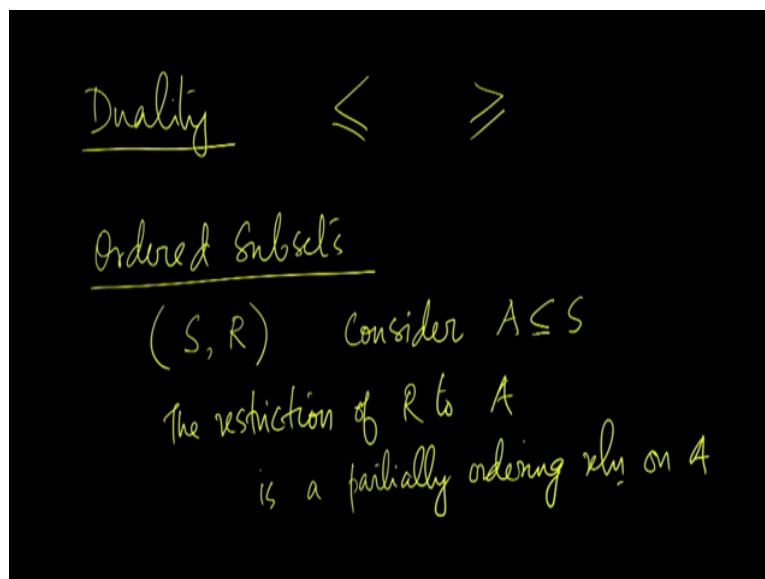 Duality ≤ ≥
Ordered Subsets
(S, R) Consider A ⊆ S
The restriction of R to A
is a partially ordering reln on A